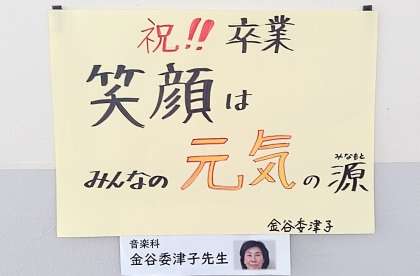 祝!! 卒業
笑顔は
みんなの元気の源
みなもと
金谷委津子
音楽科
金谷委津子先生